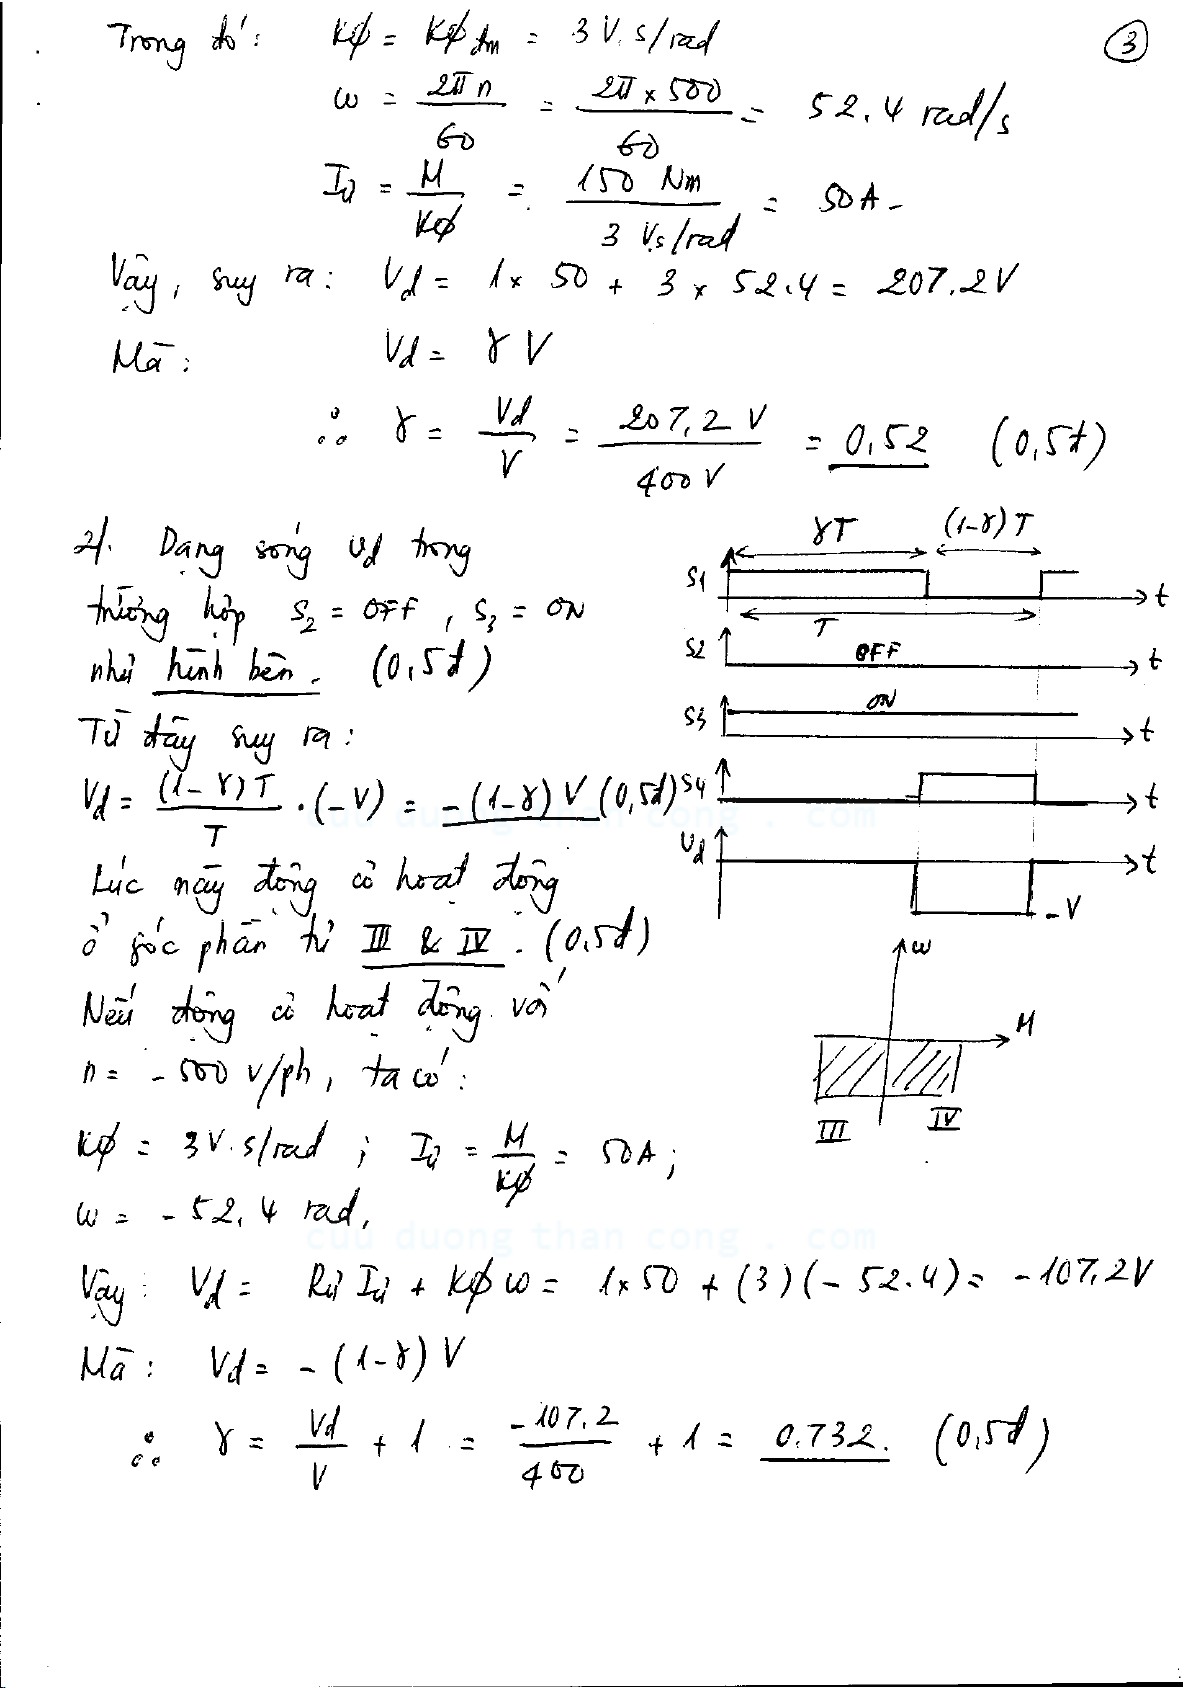 Trong đó: Kφ = Kφđm = 3 V.s/rad
③
ω = 2πn/60 = 2π×500/60 = 52.4 rad/s
Iư = M/Kφ = 150 Nm/3 Vs/rad = 50A.
Vậy, suy ra: Vd = 1× 50 + 3 × 52.4 = 207.2V
Mà: Vd = γ V
∴ γ = Vd/V = 207,2 V/400 V = 0,52 (0,5đ)
2/. Dạng sóng vd trong
trường hợp S2 = OFF, S3 = ON
như hình bên. (0,5đ)
Từ đây suy ra:
Vd = (1-γ)T/T . (-V) = -(1-γ) V (0,5đ)
Lúc này động cơ hoạt động
ở góc phần tư III & IV. (0,5đ)
Nếu động cơ hoạt động với
n = -500 v/ph, ta có:
Kφ = 3V.s/rad ; Iư = M/Kφ = 50A;
ω = -52,4 rad,
Vậy: Vd = Rư Iư + Kφ ω = 1×50 + (3)(-52.4) = -107,2V
Mà: Vd = -(1-γ) V
∴ γ = Vd/V + 1 = -107,2/400 + 1 = 0.732. (0,5đ)
γT (1-γ)T
S1 t
T
S2 OFF t
S3 ON t
S4 t
Vd t
-V
ω
M
III IV
cuu duong than cong . com
cuu duong than cong . com